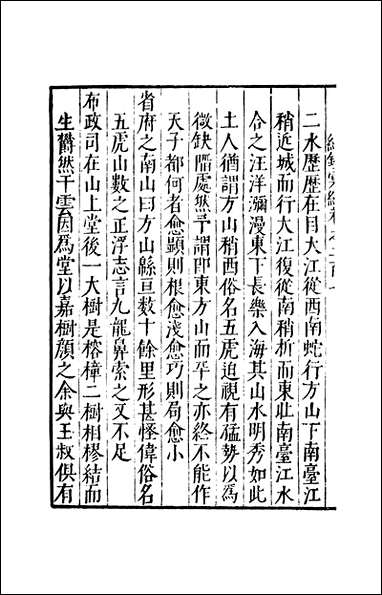 二水歷歷在目大江從西南蛇行方山下南臺江
稍近城而行大江復從南稍折而東北南臺江水
合之汪洋瀰漫東下長樂入海其山水明秀如此
土人猶謂方山稍西俗名五虎迫視有猛勢以爲
微缺陷處然予謂即東方山而平之亦終不能作
天子都何者愈顯則根愈淺愈巧則局愈小
省府之南山曰方山緜亘數十餘里形甚怪偉俗名
五虎山數之正浮志言九龍鼻索之又不足
布政司在山上堂後一大樹是榕樟二樹相樛結而
生欝然干雲因爲堂以嘉樹顔之余與王叔俱有